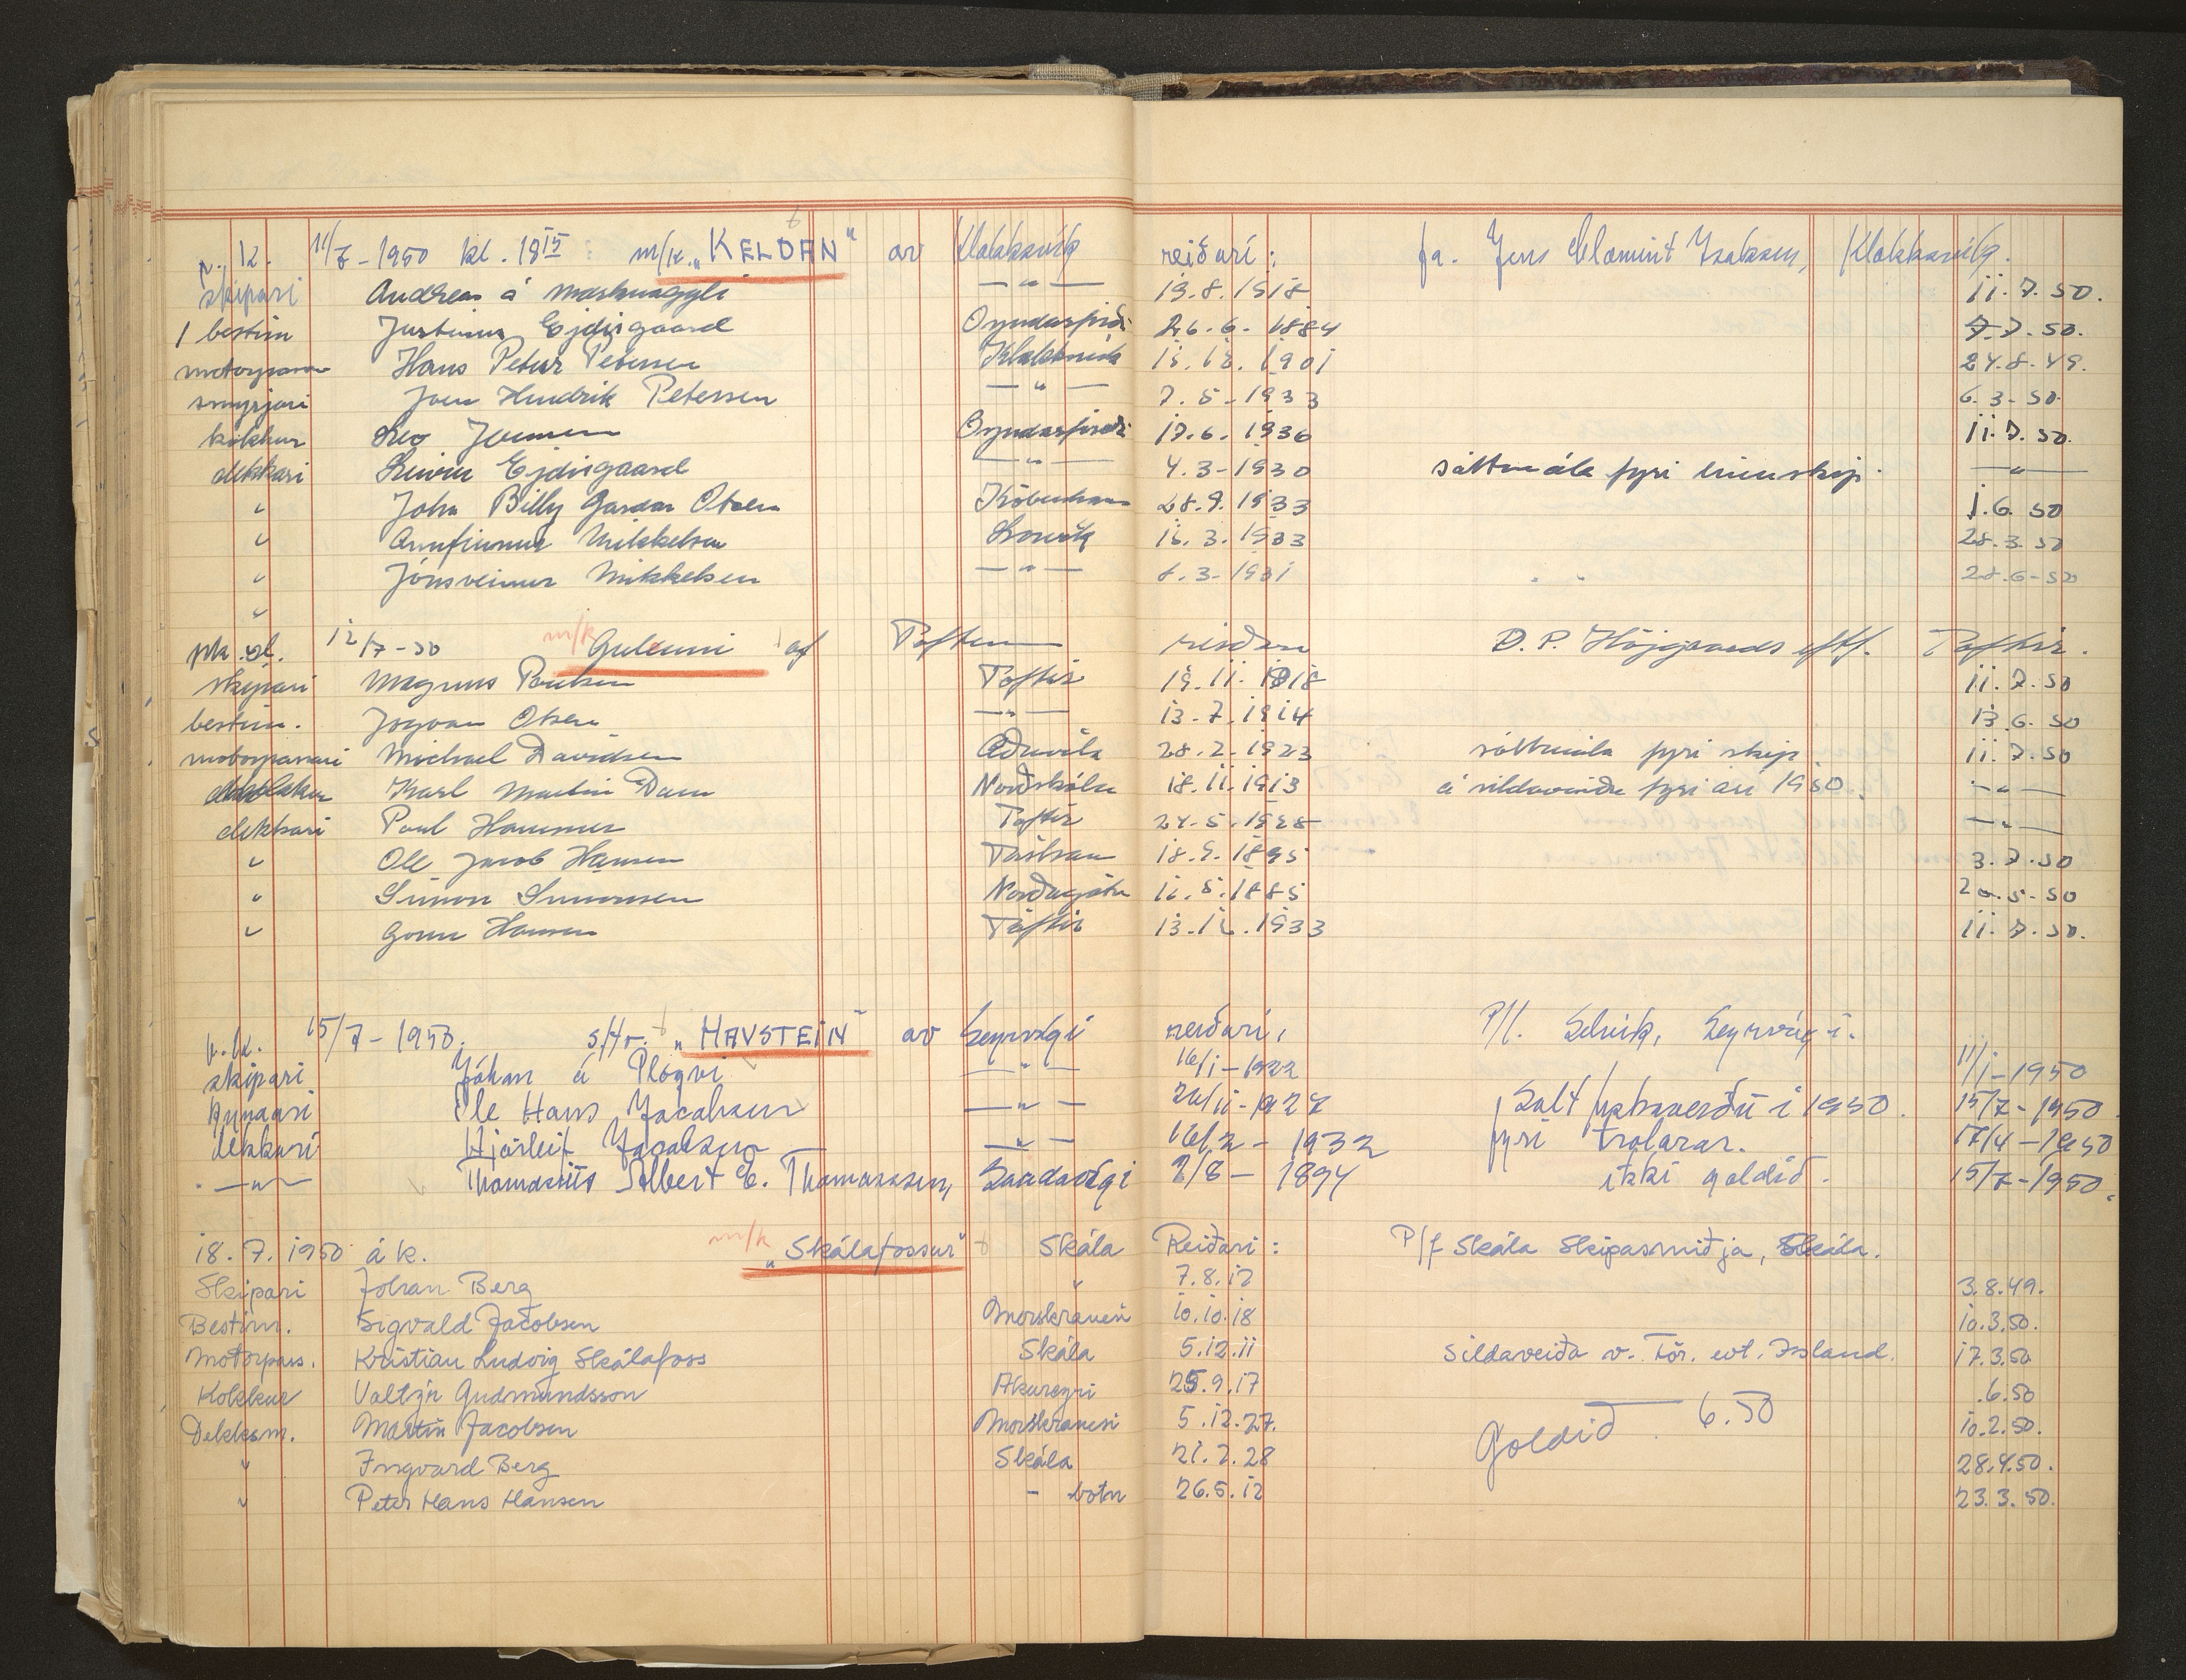 p. k. 11/7-1950 kl. 18 15 m/k. "KELDAN" av Klakksvík reiðari: fa. Jens Clemint Isaksen, Klakksvík.
skipari Andreas á —"— 19.8.1918 11.7.50.
1 bestim Justinus Ejdisgaard Oyndarfirði 26.6.1884 7.7.50.
motorpassari Hans Petur Petersen Klakksvík 15.12.1901 24.8.49.
smyrjari Joen Hendrik Petersen —"— 7.5-1933 6.3-50.
kokkur Leo Joensen Oyndarfirði 17.6.1936 11.7.50.
dekkari Ejdisgaard —"— 4.3-1930 sáttmála fyri línuskip. —"—
" John Billy Gardar Olsen København 28.9.1933 1.6.50
" Arnfinnur Mikkelsen 1933 28.3.50
" Jónsveinur Mikkelsen —"— 8.3-1931 28.6-50
"
12/7-50 m/k af Toftum D. P. Højgaards eftf. Toftir.
skipari Magnus Poulsen Toftir 19.11.1918 11.7.50
bestim. Jógvan Olsen —"— 13.7.1914 13.6.50
motorpassari Michael Davidsen Æðuvík 28.2.1923 sáttmála fyri skip 11.7.50
Karl Martin Dam Norðskála 18.11.1913 á sildaveiðu fyri árið 1950. —"—
dekkari Poul Hammer Toftir 24.5.1928 —"—
" Ole Jacob Hansen 18.9.1895 3.7.50
" Simon Simonsen Norðragøtu 1885 20.5-50
" Gorm Hansen Toftir 1933 11.7.50.
p. k. 15/7-1950. s/tr. "HAVSTEIN" av Sørvági reiðari, P/f. Selvík, Sørvági.
skipari Jóhan á Plógvi —"— 16/1-1922 11/1-1950
kynaari Ole Hans Jacobsen —"— 26/11-1927 Salt fiskaveiðu í 1950. 15/7-1950
dekkari Hjørleif Jacobsen —"— 16/2-1932 fyri trolarar. 17/4-1950
—"— Thomasius Albert E. Thomassen, Sandavági 2/8-1894 ikki goldið. 15/7-1950.
18.7.1950 á k. m/k "Skálafossur" Skála Reiðari: P/f Skála Skipasmiðja, Skála.
Skipari Johan Berg " 7.8.12 3.8.49.
Bestim. Sigvald Jacobsen Morskranesi 10.10.18 10.3.50.
Motorpass. Kristian Ludvig Skálafoss Skála 5.12.11 Sildaveiða v. Før. evt. Island. 17.3.50
Kokkur Valtýr Gudmundsson Akureyri 25.9.17 .6.50
Dekksm. Martin Jacobsen Morskranesi 5.12.27. Goldið 6.50 10.2.50.
" Ingvard Berg Skála 21.2.28 28.4.50.
" Peter Hans Hansen – botn 26.5.12 23.3.50.